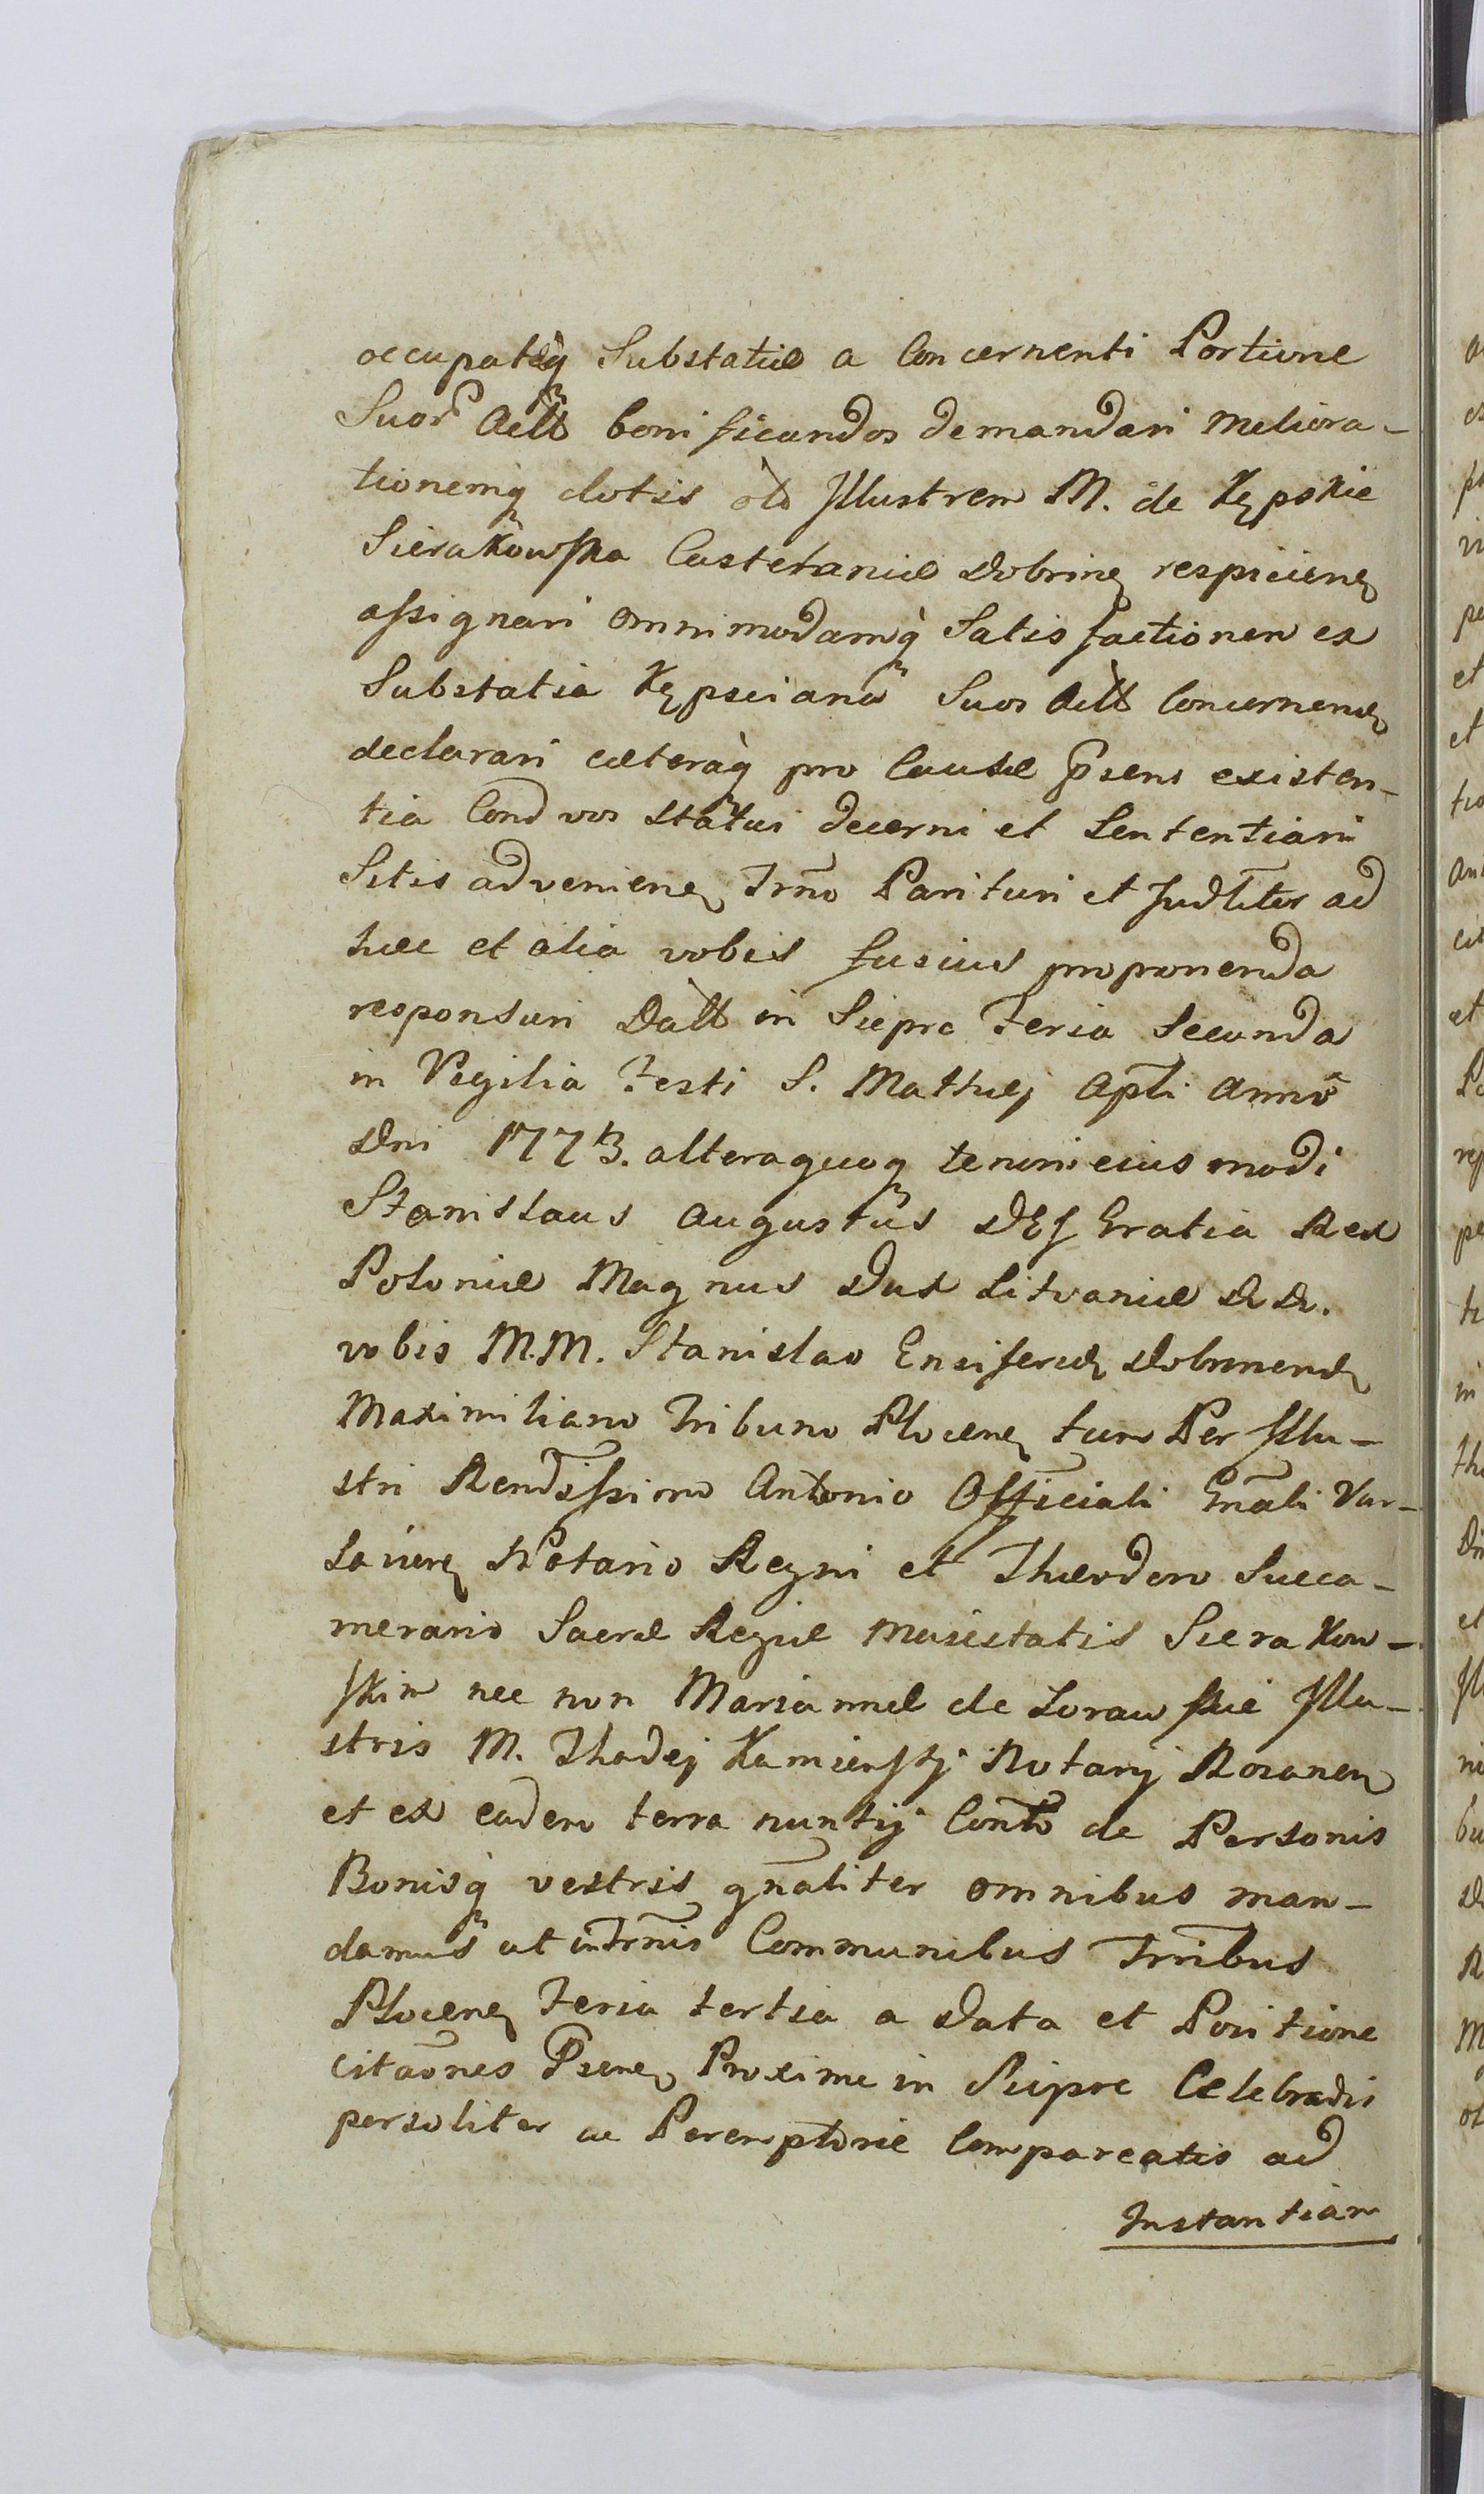 occupatęq Substatiæ a Concernenti Portione
Suor Actt bonificandos demandari meliora-
tionemq dotis ob Jllustrem M. de Kępskie
Sierakowska Castelaniæ Dobrinę respicienę
assignari omnimodamq Satisfactionem ex
Substatia Kępsciana Suos Actt Concernenę
declarari cæteraq pro Causæ psens existen-
tia Cond vos Statui decerni et Sententiari
Sitis advenienę Trno Parituri et Judlter ad
hæc et alia vobis fusius proponenda
responsuri Datt in Sieprc Feria Secunda
in Vigilia Festi S. Mathæj Apli Anno
Dni 1773. alteraquoq tenoris eiusmodi
Stanislaus Augustus DEJ Gratia Rex
Poloniæ Magnus Dux Litvaniæ &&.
vobis M.M. Stanislao Ensifero Dobrinenę
Maximiliano Tribuno Plocenę tum Per Jllu-
stri Rendissimo Antonio Officiali Gnali Var-
savienę Notario Regni et Theodoro Succa-
merario Sacræ Regiæ Maiestatis Sierakow-
skim nec non Mariannæ de Zorawskie Jllu-
stris M. Thadej Kamienskj Notarij Rozanen
et ex eadem terra nuntij Conto de Personis
Bonisq vestris gnaliter omnibus man-
damus ut in Trnis Communibus Trribus
Plocenę Feria tertia a Data et Positione
citaones Psenę Proxime in Sieprc Celebradis
persoliter ac Peremptorie Compareatis ad
Instantiam